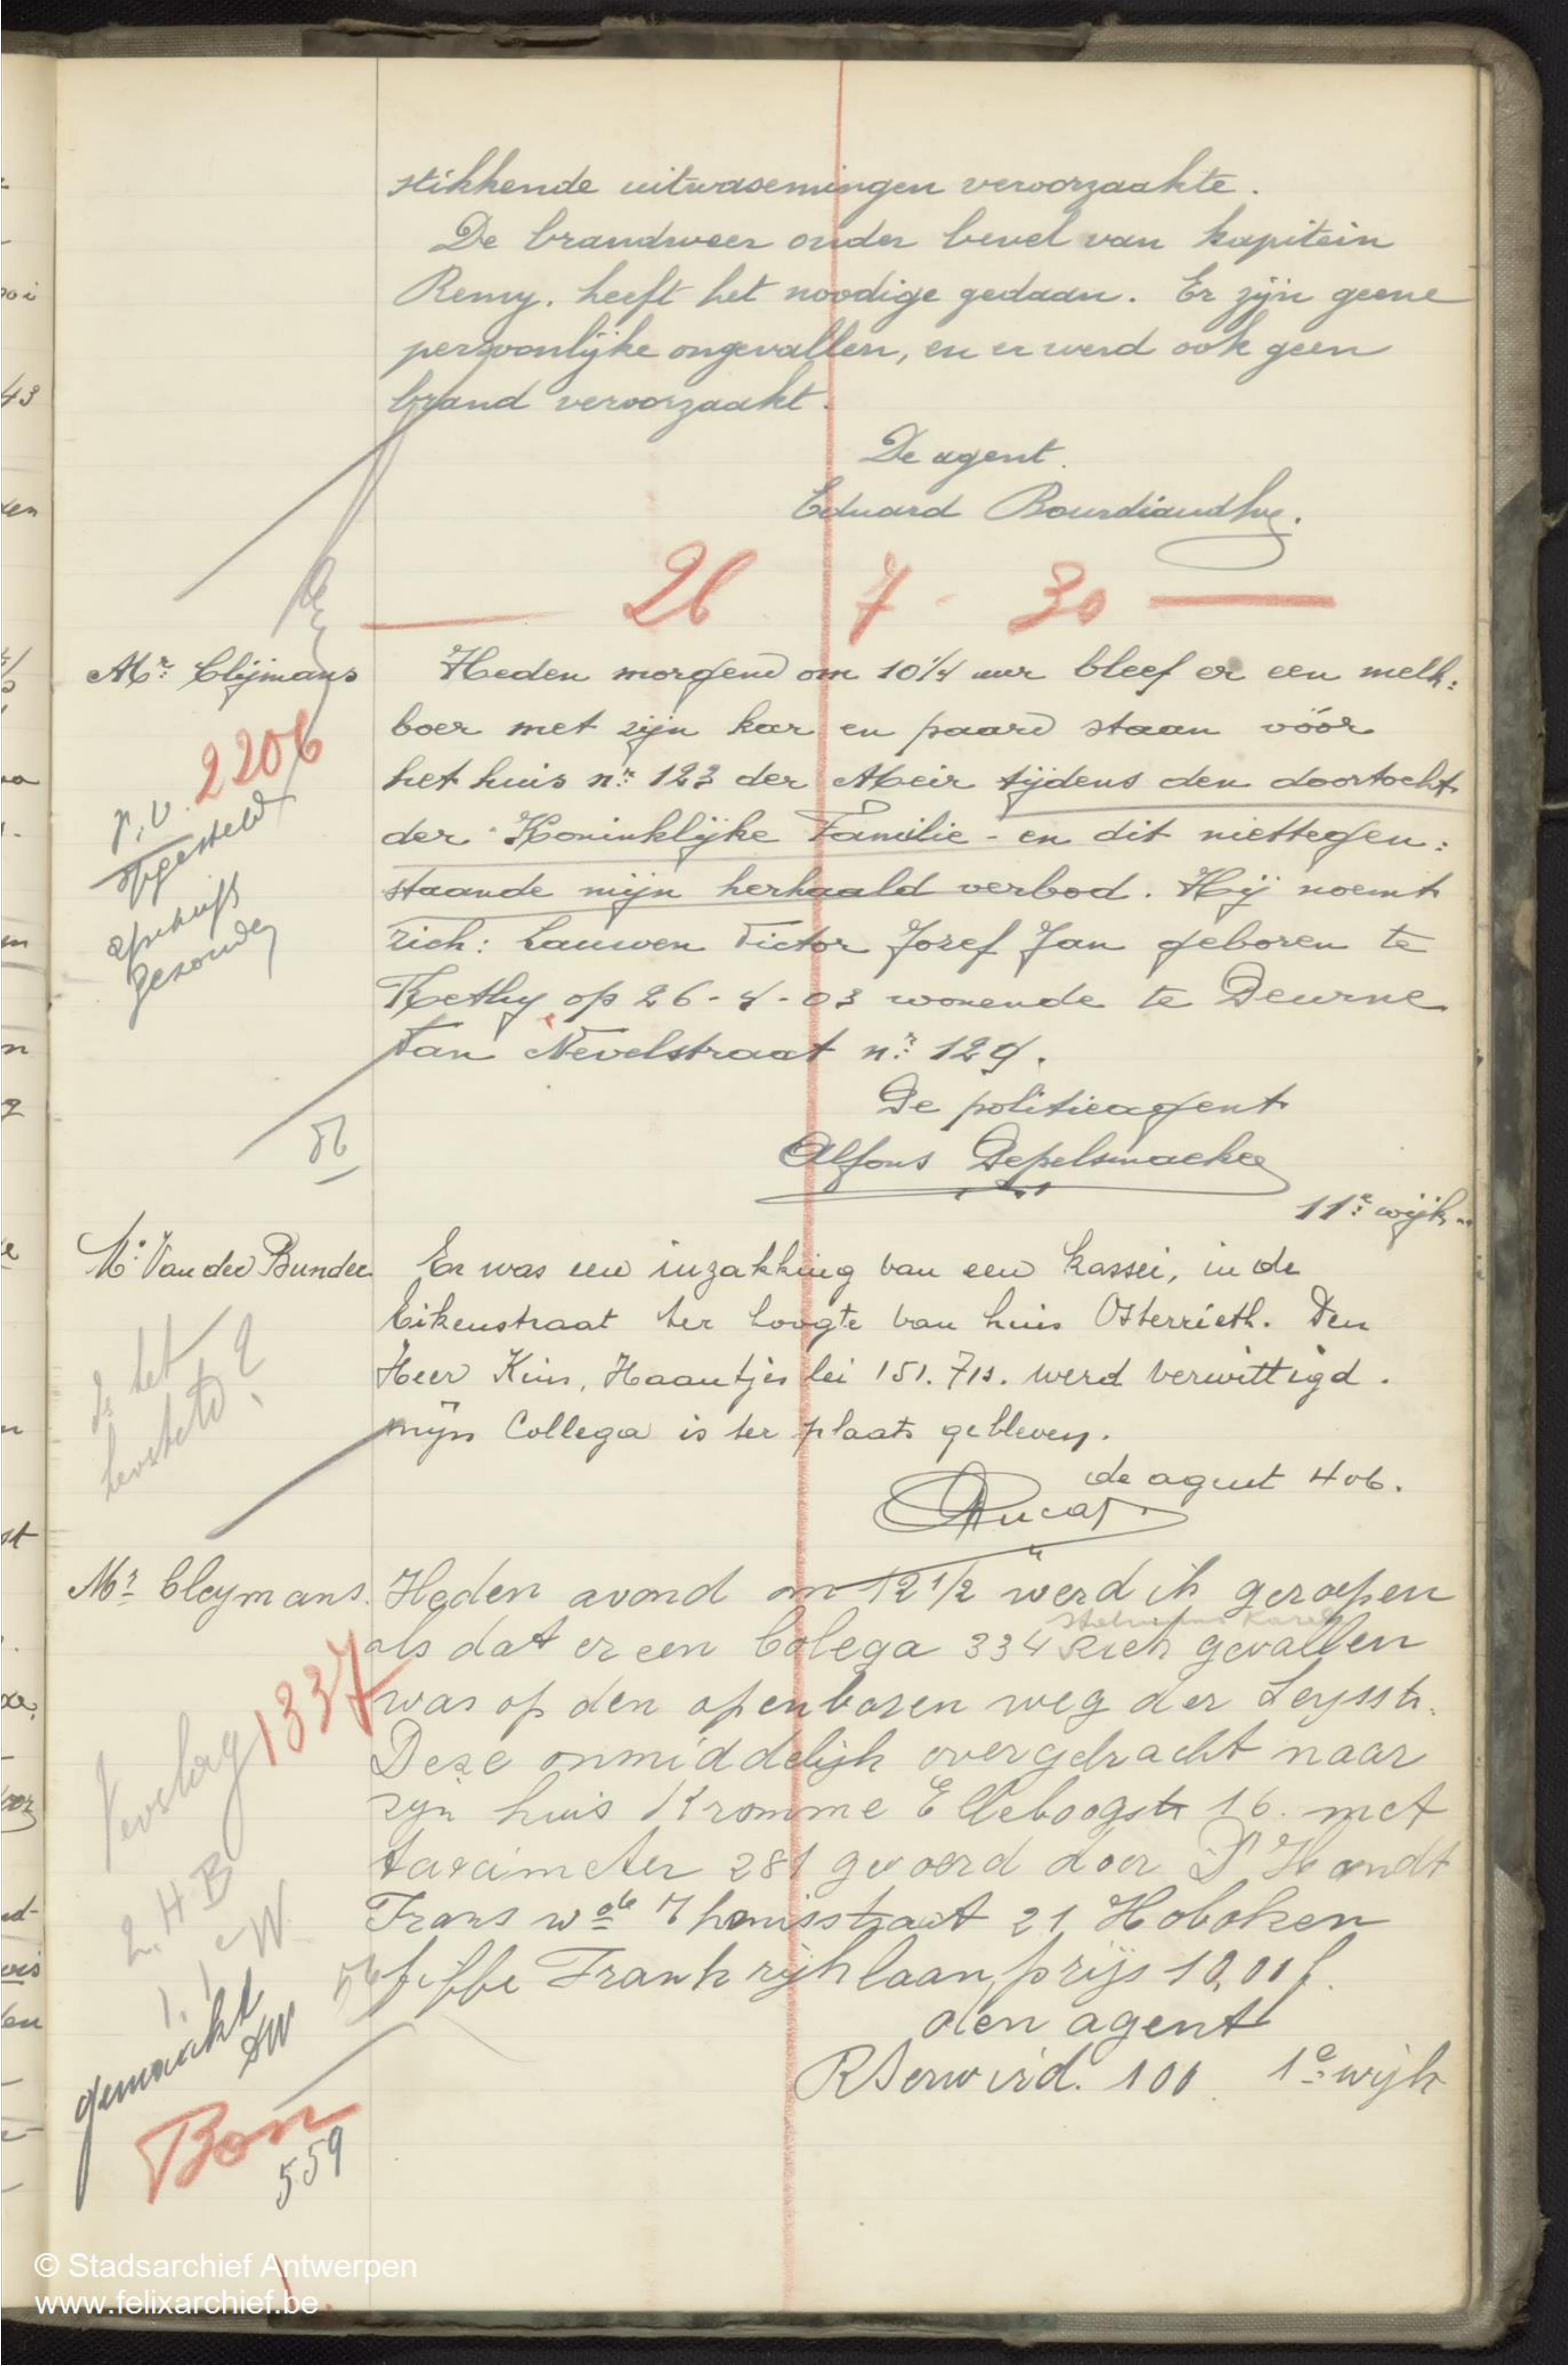 stikkende uitwasemingen veroorzaakte.
De brandweer onder bevel van kapitein
Remy. heeft het noodige gedaan. Er zijn geene
persoonlijke ongevallen, en er werd ook geen
brand veroorzaakt.
De agent.
Eduard
26 7 - 30
Mr Clijmans
Heden morgend om 10 1/4 uur bleef er een melk:
boer met zijn kar en paard staan vóór
het huis nr 123 der Meir tijdens den doortocht
der Koninklijke Familie - en dit niettegen:
staande mijn herhaald verbod. Hij noemt
zich: Lauwen Victor Jozef Jan geboren te
Rethy op 26 - 4 - 03 wonende te Deurne
Van Nevelstraat nr 129.
De politieagent
Alfons Depelsmaeker
11e wijk.
2206
p.v.
opgesteld
afschrift
gezonden
Mr Van der Bunder
Er was een inzakking van een kassei, in de
Eikenstraat ter hoogte van huis Osterrieth. Den
Heer Kuis, Haantjes lei 151. 713. werd verwittigd.
mijn Collega is ter plaats gebleven.
de agent 406.
Is het
hersteld?
Mr Cleymans.
Heden avond om 12 1/2 werd ik geroepen
als dat er een Colega 334 Karel ziek gevallen
was op den openbaren weg der Leysstr.
Deze onmiddelijk overgebracht naar
zijn huis Kromme Elleboogstr 16. met
taximeter 281 gevoerd door D'Hondt
Frans wde Thonisstraat 21 Hoboken
Frankrijklaan, prijs 10,00 f.
den agent
100 1e wijk
Verslag 1337
2. H B
1. 1e W.
gemaakt
AW
Bon
559
© Stadsarchief Antwerpen
www.felixarchief.be